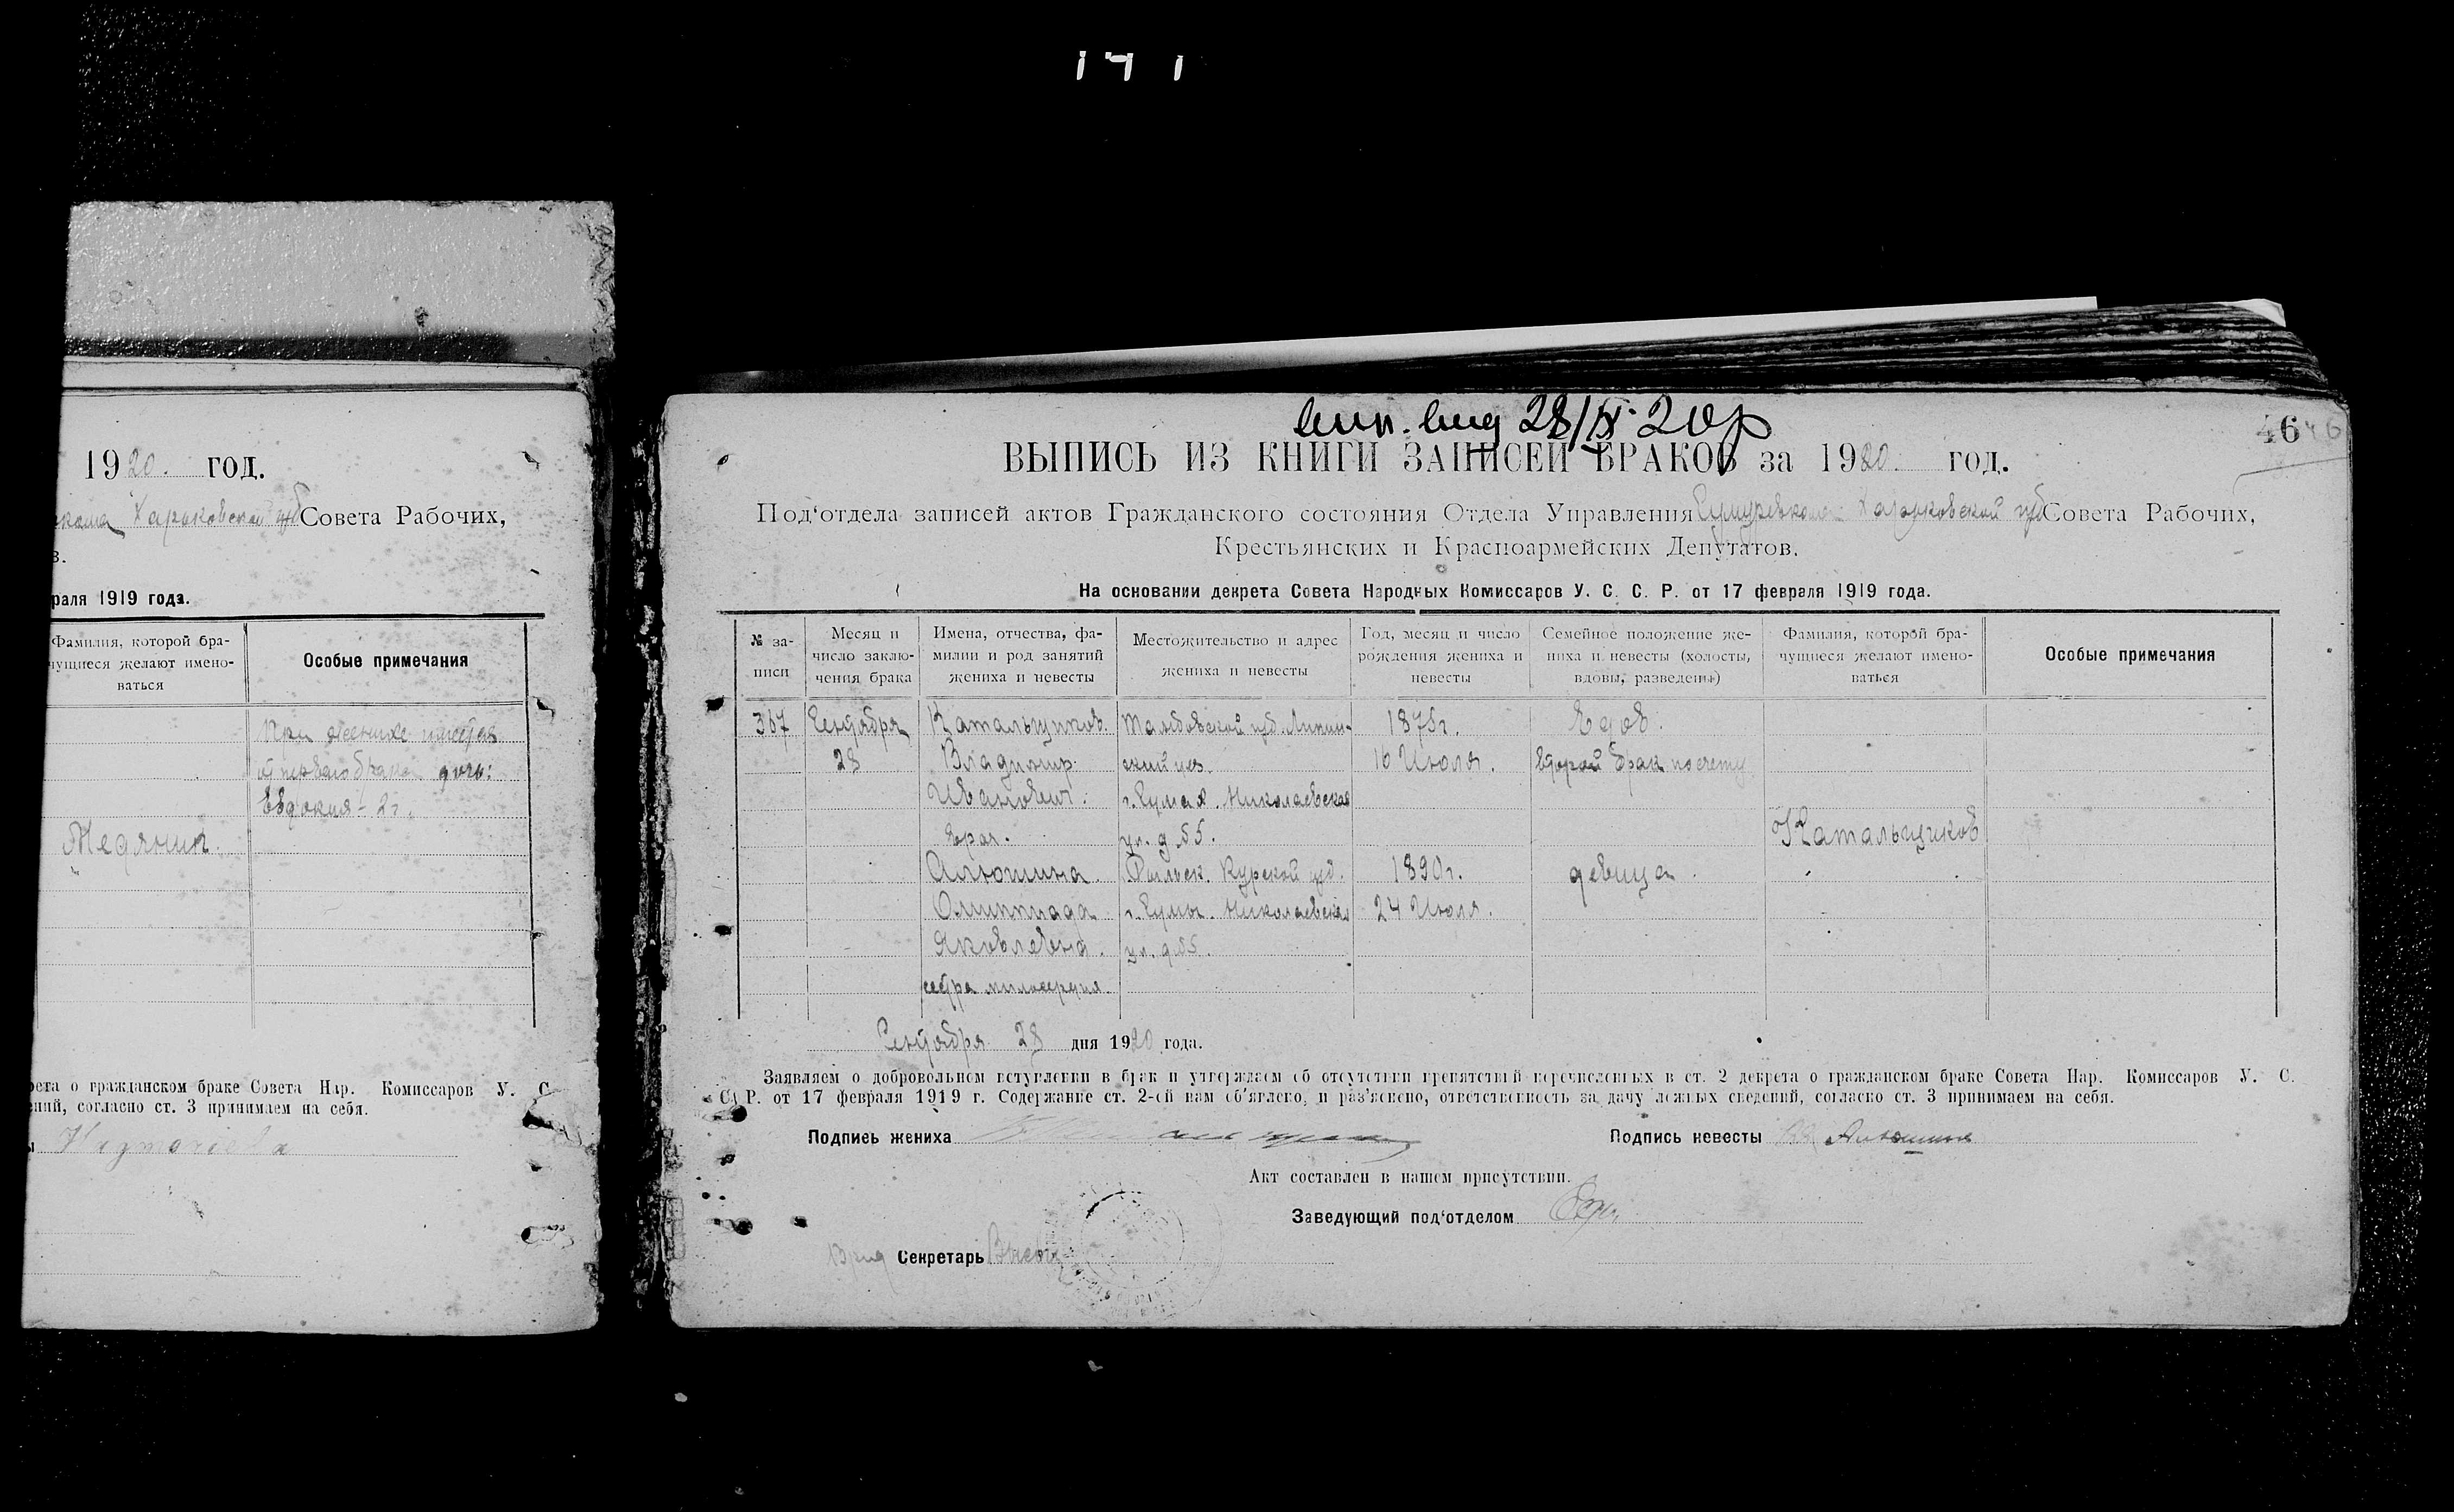 141
1920. год.
Харьковской губ Совета Рабочих,
в.
раля 1919 года.
Фамилия, которой бра-
чущиеся желают имено-
ваться
Особые примечания
При женихе имеется
от первого брака дочь:
Евдокия - 2 г.
Медяник
рета о гражданском браке Совета Нар. Комиссаров У. С.
ений, согласно ст. 3 принимаем на себя.
вып. вид 28/IX 20 г
46
ВЫПИСЬ ИЗ КНИГИ ЗАПИСЕЙ БРАКОВ за 1920 год.
Под‘отдела записей актов Гражданского состояния Отдела Управления Сумуревкома Харьковской губ Совета Рабочих,
Крестьянских и Красноармейских Депутатов.
На основании декрета Совета Народных Комиссаров У. С. С. Р. от 17 февраля 1919 года.
№ за-
писи
Месяц и
число заклю-
чения брака
Имена, отчества, фа-
милии и род занятий
жениха и невесты
Местожительство и адрес
жениха и невесты
Год, месяц и число
рождения жениха и
невесты
Семейное положение же-
ниха и невесты (холосты,
вдовы, разведены)
Фамилия, которой бра-
чущиеся желают имено-
ваться
Особые примечания
307 Сентября Катальщиков Тамбовской губ. Липец- 1875 г. Вдов.
28 Владимир кий уез. 16 Июля. второй брак по счету
Иванович. г. Сумы. Николаевская
Врач. ул. д 55. Катальщиков
Анюшина. Рыльск. Курской губ. 1890 г. девица.
Олимпиада г. Сумы. Николаевская 24 Июля.
Яковлевна. ул. д 55.
сестра милосердия.
Сентября 28 дня 1920 года.
Заявляем о добровольном вступлении в брак и утверждаем об отсутствии препятствий перечисленных в ст. 2 декрета о гражданском браке Совета Нар. Комиссаров У. С.
С. Р. от 17 февраля 1919 г. Содержание ст. 2-ой нам об‘явлено, и раз‘яснено, ответственность за дачу ложных сведений, согласно ст. 3 принимаем на себя.
Подпись жениха
Подпись невесты Анюшина
Акт составлен в нашем присутствии.
Заведующий под‘отделом
Врид Секретарь